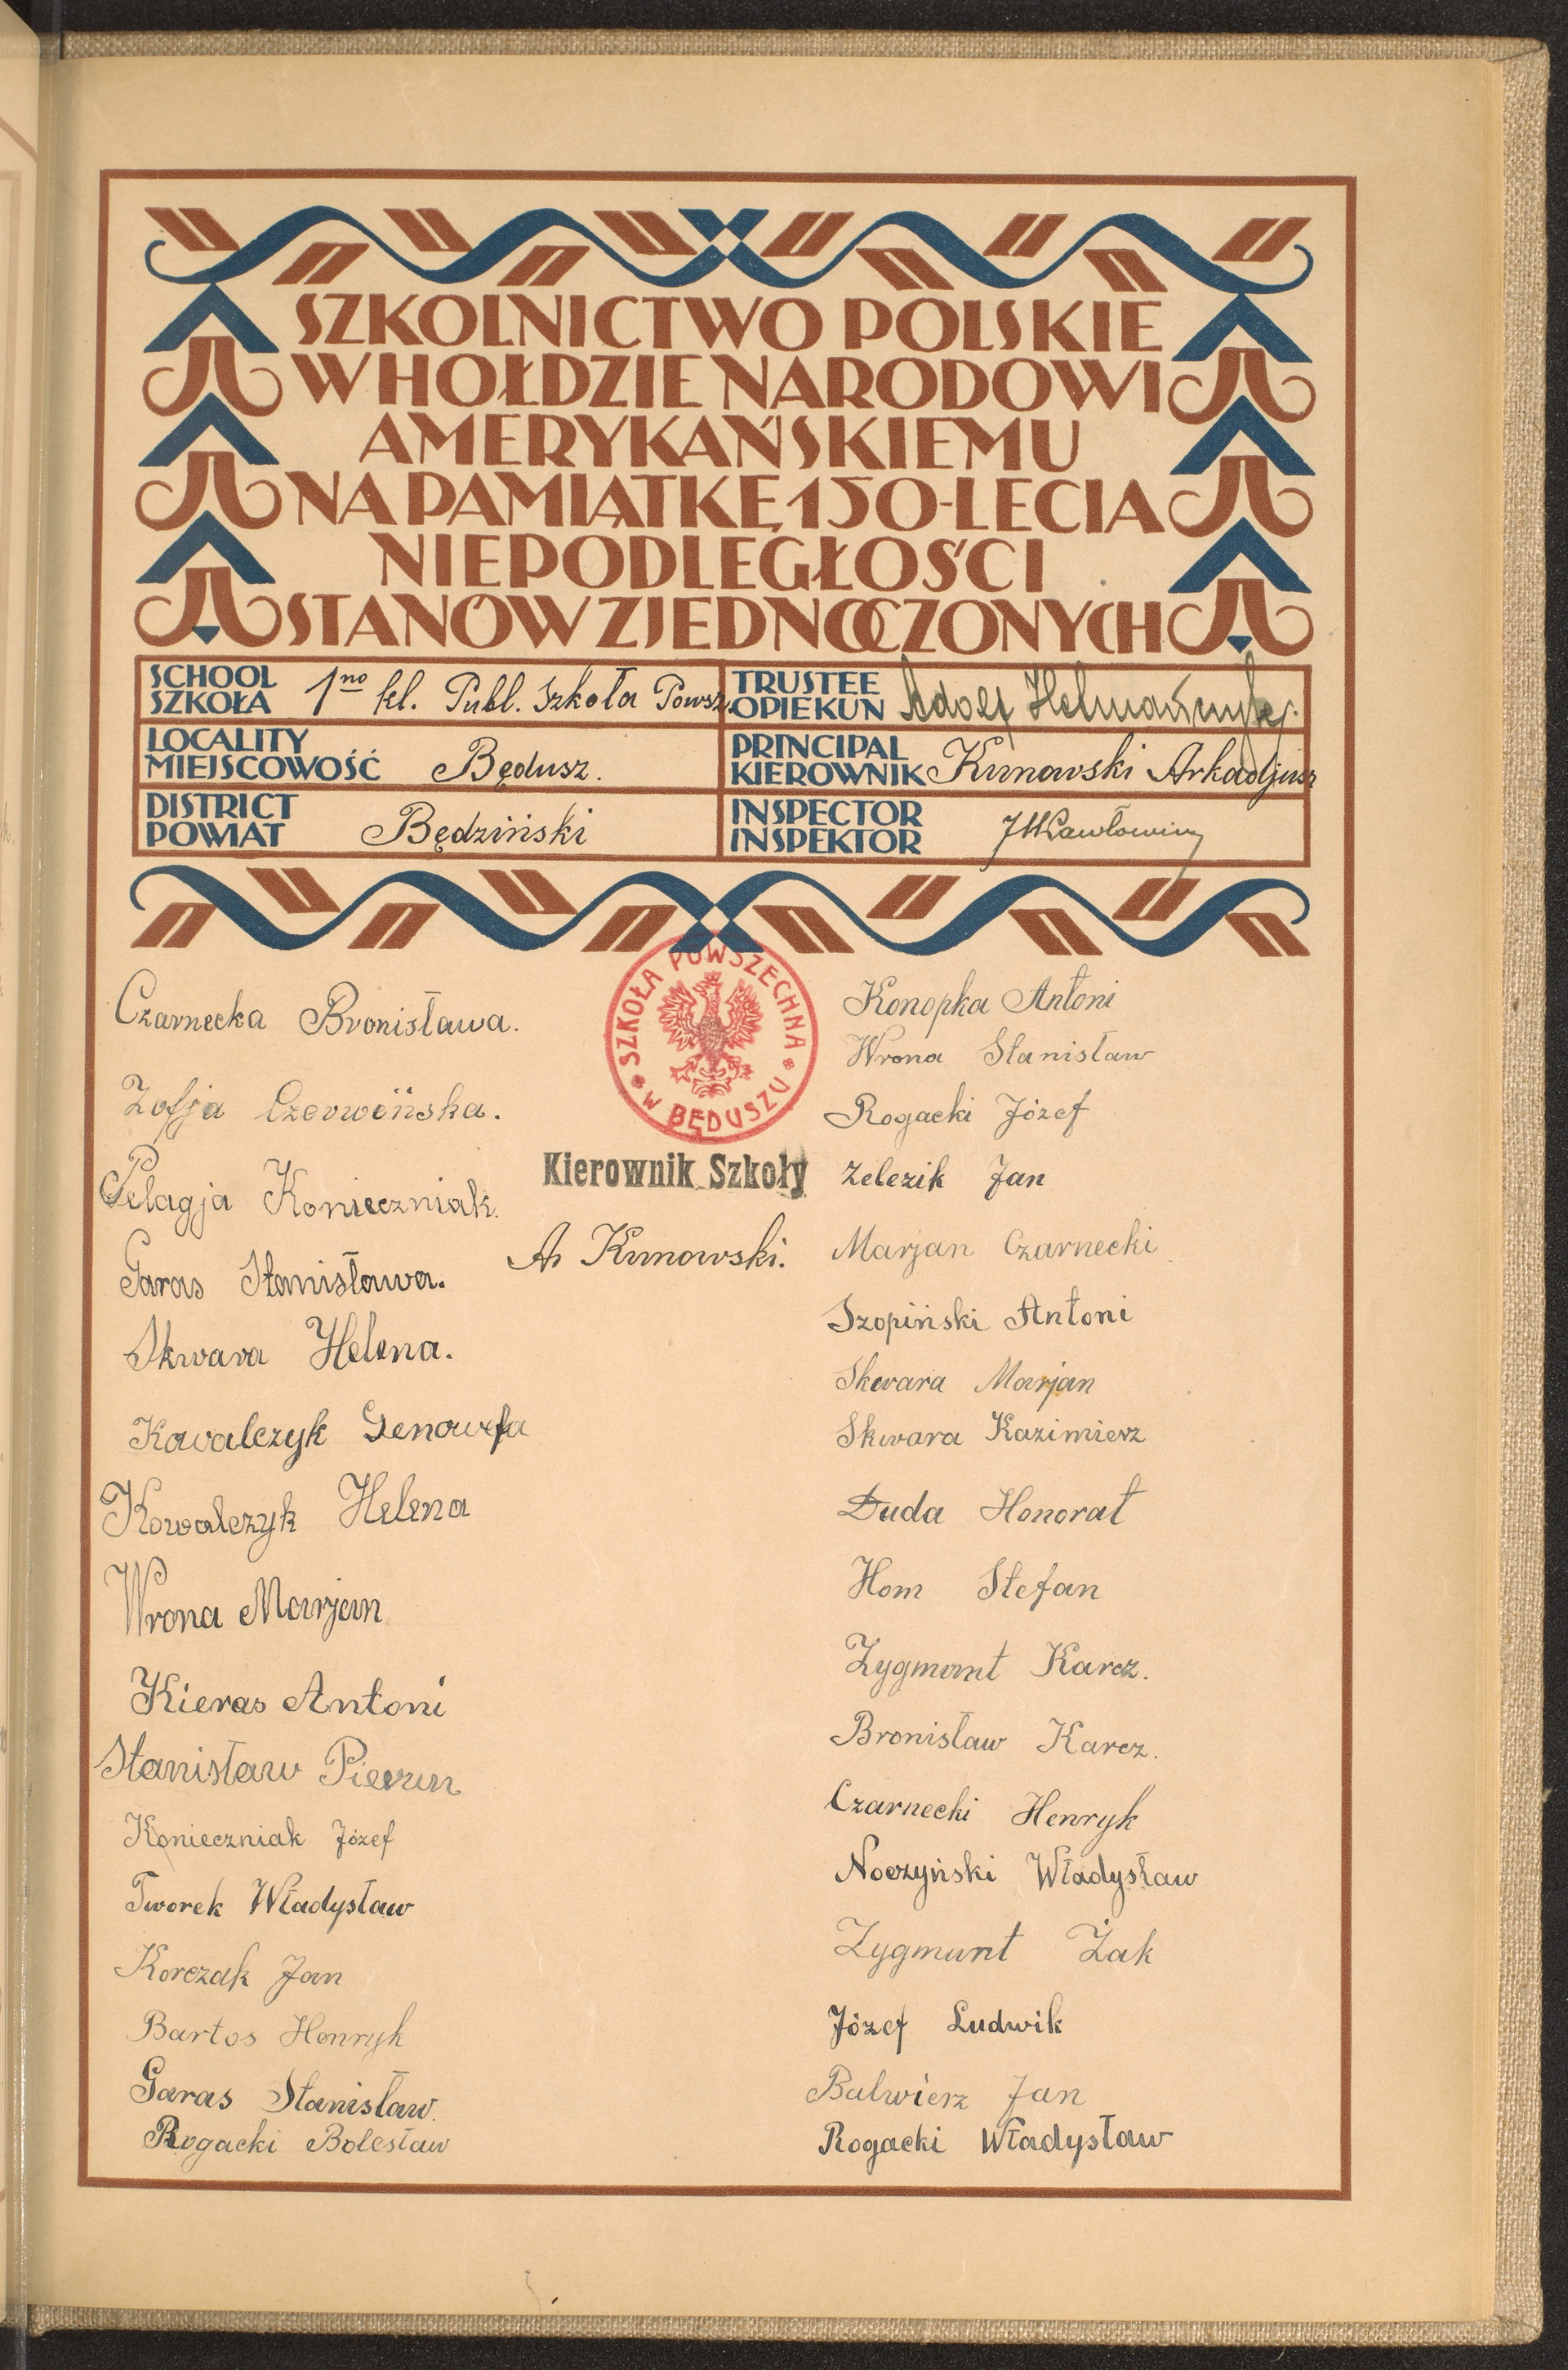 SZKOLNICTWO POLSKIE
W HOŁDZIE NARODOWI
AMERYKAŃSKIEMU
NA PAMIĄTKĘ 150-LECIA
NIEPODLEGŁOŚCI
STANÓW ZJEDNOCZONYCH
SCHOOL
SZKOŁA 1no kl. Publ. Szkoła Powsz.
TRUSTEE
OPIEKUN Adolf
LOCALITY
MIEJSCOWOŚĆ Będusz.
PRINCIPAL
KIEROWNIK Kunowski Arkadjusz
DISTRICT
POWIAT Będziński
INSPECTOR
INSPEKTOR
SZKOŁA POWSZECHNA
W BĘDUSZU
Kierownik Szkoły
Ar Kunowski.
Czarnecka Bronisława.
Zofja Czerwińska.
Pelagja Konieczniak.
Garas Stanisława.
Skwara Helena.
Kowalczyk Genowefa
Kowalczyk Helena
Wrona Marjan
Kieras Antoni
Stanisław Pierun
Konieczniak Józef
Tworek Władysław
Korczak Jan
Bartos Henryk
Garas Stanisław.
Rogacki Bolesław
Konopka Antoni
Wrona Stanisław
Rogacki Józef
Żelezik Jan
Marjan Czarnecki
Szopiński Antoni
Skwara Marjan
Skwara Kazimierz
Duda Honorat
Hom Stefan
Zygmunt Karcz.
Bronisław Karcz.
Czarnecki Henryk
Noczyński Władysław
Zygmunt Żak
Józef Ludwik
Balwierz Jan
Rogacki Władysław